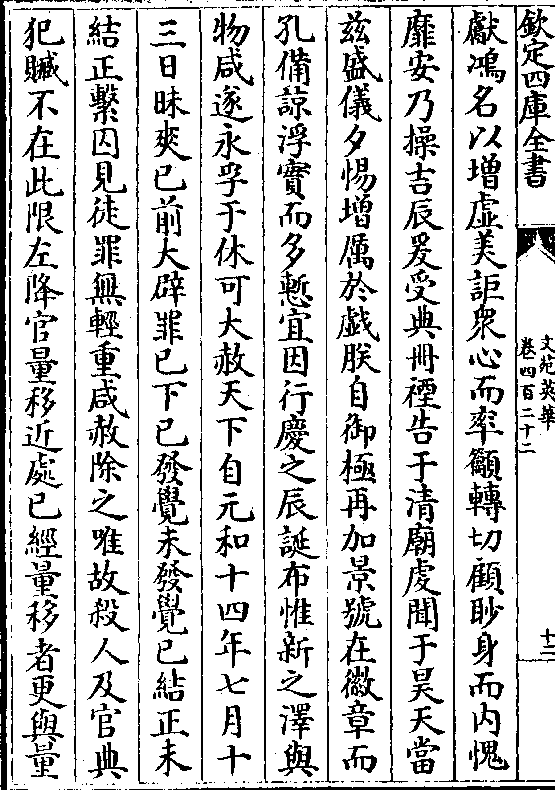 欽定四庫全書
文苑英華
卷四百二十二
十二
獻鴻名以增虛美詎衆心而率籲轉切顧眇身而内愧
靡安乃操吉辰爰受典冊禋告于清廟虔聞于昊天當
兹盛儀夕惕增厲於戯朕自御極再加景號在徽章而
孔備諒浮實而多慙宜因行慶之辰誕布惟新之澤與
物咸遂永孚于休可大赦天下自元和十四年七月十
三日昧爽已前大辟罪已下已發覺未發覺已結正未
結正繫囚見徒罪無輕重咸赦除之唯故殺人及官典
犯贓不在此限左降官量移近處已經量移者更與量